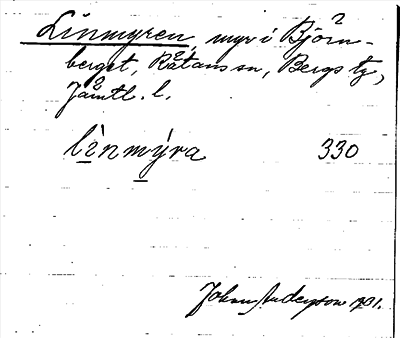 Linmyren, myr i Björn-
berget, Rätans sn, Bergs tg,
Jämtl. l.
lìnmýra 330
Johan Anderson 1701.